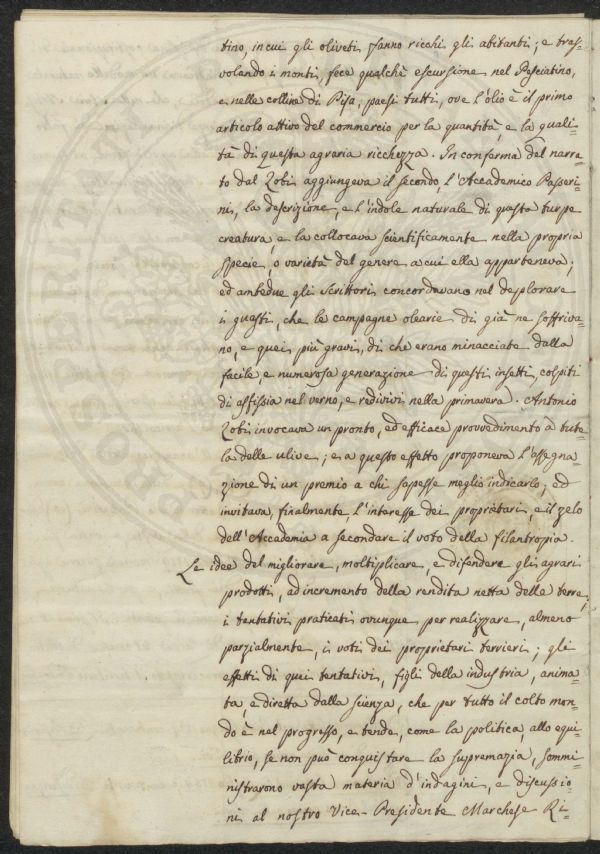 tino, in cui gli oliveti fanno ricchi gli abitanti; e tras=
volando i monti, fece qualche escursione nel Pesciatino,
e nelle colline di Pisa, paesi tutti, ove l'olio è il primo
articolo attivo del commercio per la quantità, e la quali=
tà di questa agraria ricchezza. In conferma del narra=
to dal Zobi, aggiungeva il secondo, l'Accademico Passeri=
ni, la descrizione, e l'indole naturale di questa turpe
creatura, e la collocava scientificamente nella propria
specie, o varietà del genere a cui ella apparteneva;
ed ambedue gli Scrittori concordavano nel deplorare
i guasti, che le campagne olearie di già ne soffriva=
no, e quei più gravi, di che erano minacciate dalla
facile, e numerosa generazione di questi insetti, colpiti
di asfissia nel verno, e redivivi nella primavera. Antonio
Zobi invocava un pronto, ed efficace provvedimento a tute=
la delle ulive; e a questo effetto proponeva l'assegna=
zione di un premio a chi sapesse meglio indicarlo; ed
invitava, finalmente, l'interesse dei proprietari, e il zelo
dell'Accademia a secondare il voto della filantropia.
Le idee del migliorare, moltiplicare, e difendere gli agrari
prodotti, ad incremento della rendita netta delle terre;
i tentativi praticati ovunque per realizzare, almeno
parzialmente, i voti dei proprietari terrieri; gli
effetti di quei tentativi, figli della industria, anima=
ta, e diretta dalla scienza, che per tutto il colto mon=
do è nel progresso, e tende, come la politica, allo equi=
librio, se non può conquistare la supremazia, sommi=
nistrarono vasta materia d'indagini, e discussio=
ni al nostro Vice-Presidente Marchese Ri=